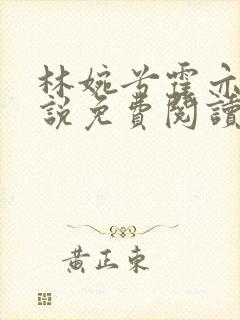 林婉兮霍亦
說免費閱讀
黃正東